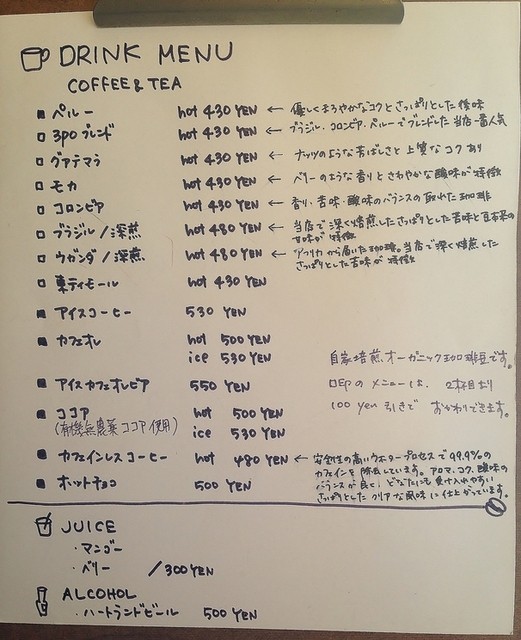 DRINK MENU
COFFEE & TEA
■ ペルー hot 430 YEN ← 優しくまろやかなコクとさっぱりとした後味
□ 3po ブレンド hot 430 YEN ← ブラジル、コロンビア、ペルーでブレンドした当店一番人気
□ グァテマラ hot 430 YEN ← ナッツのような芳ばしさと上質なコクあり
□ モカ hot 430 YEN ← ベリーのような香りとさわやかな酸味が特徴
□ コロンビア hot 430 YEN ← 香り、苦味、酸味のバランスの取れた珈琲
□ ブラジル/深煎 hot 480 YEN ← 当店で深く焙煎したさっぱりとした苦味と豆本来の
甘味が特徴
□ ウガンダ/深煎 hot 480 YEN ← アフリカから届いた珈琲。当店で深く焙煎した
さっぱりとした苦味が特徴
□ 東ティモール hot 430 YEN
■ アイスコーヒー 530 YEN
■ カフェオレ hot 500 YEN
ice 530 YEN
自家焙煎、オーガニック珈琲豆です。
■ アイスカフェオレビア 550 YEN
□印のメニューは、2杯目より
100 yen 引きで おかわりできます。
■ ココア hot 500 YEN
(有機無農薬ココア使用) ice 530 YEN
■ カフェインレスコーヒー hot 480 YEN ← 安全性の高いウォータープロセスで99.9%の
カフェインを除去しています。アロマ、コク、酸味の
バランスが良く、どなたにも受け入れやすい
さっぱりとしたクリアな風味に仕上がっています。
■ ホットチョコ 500 YEN
JUICE
・マンゴー
・ベリー /300 YEN
ALCOHOL
・ハートランドビール 500 YEN